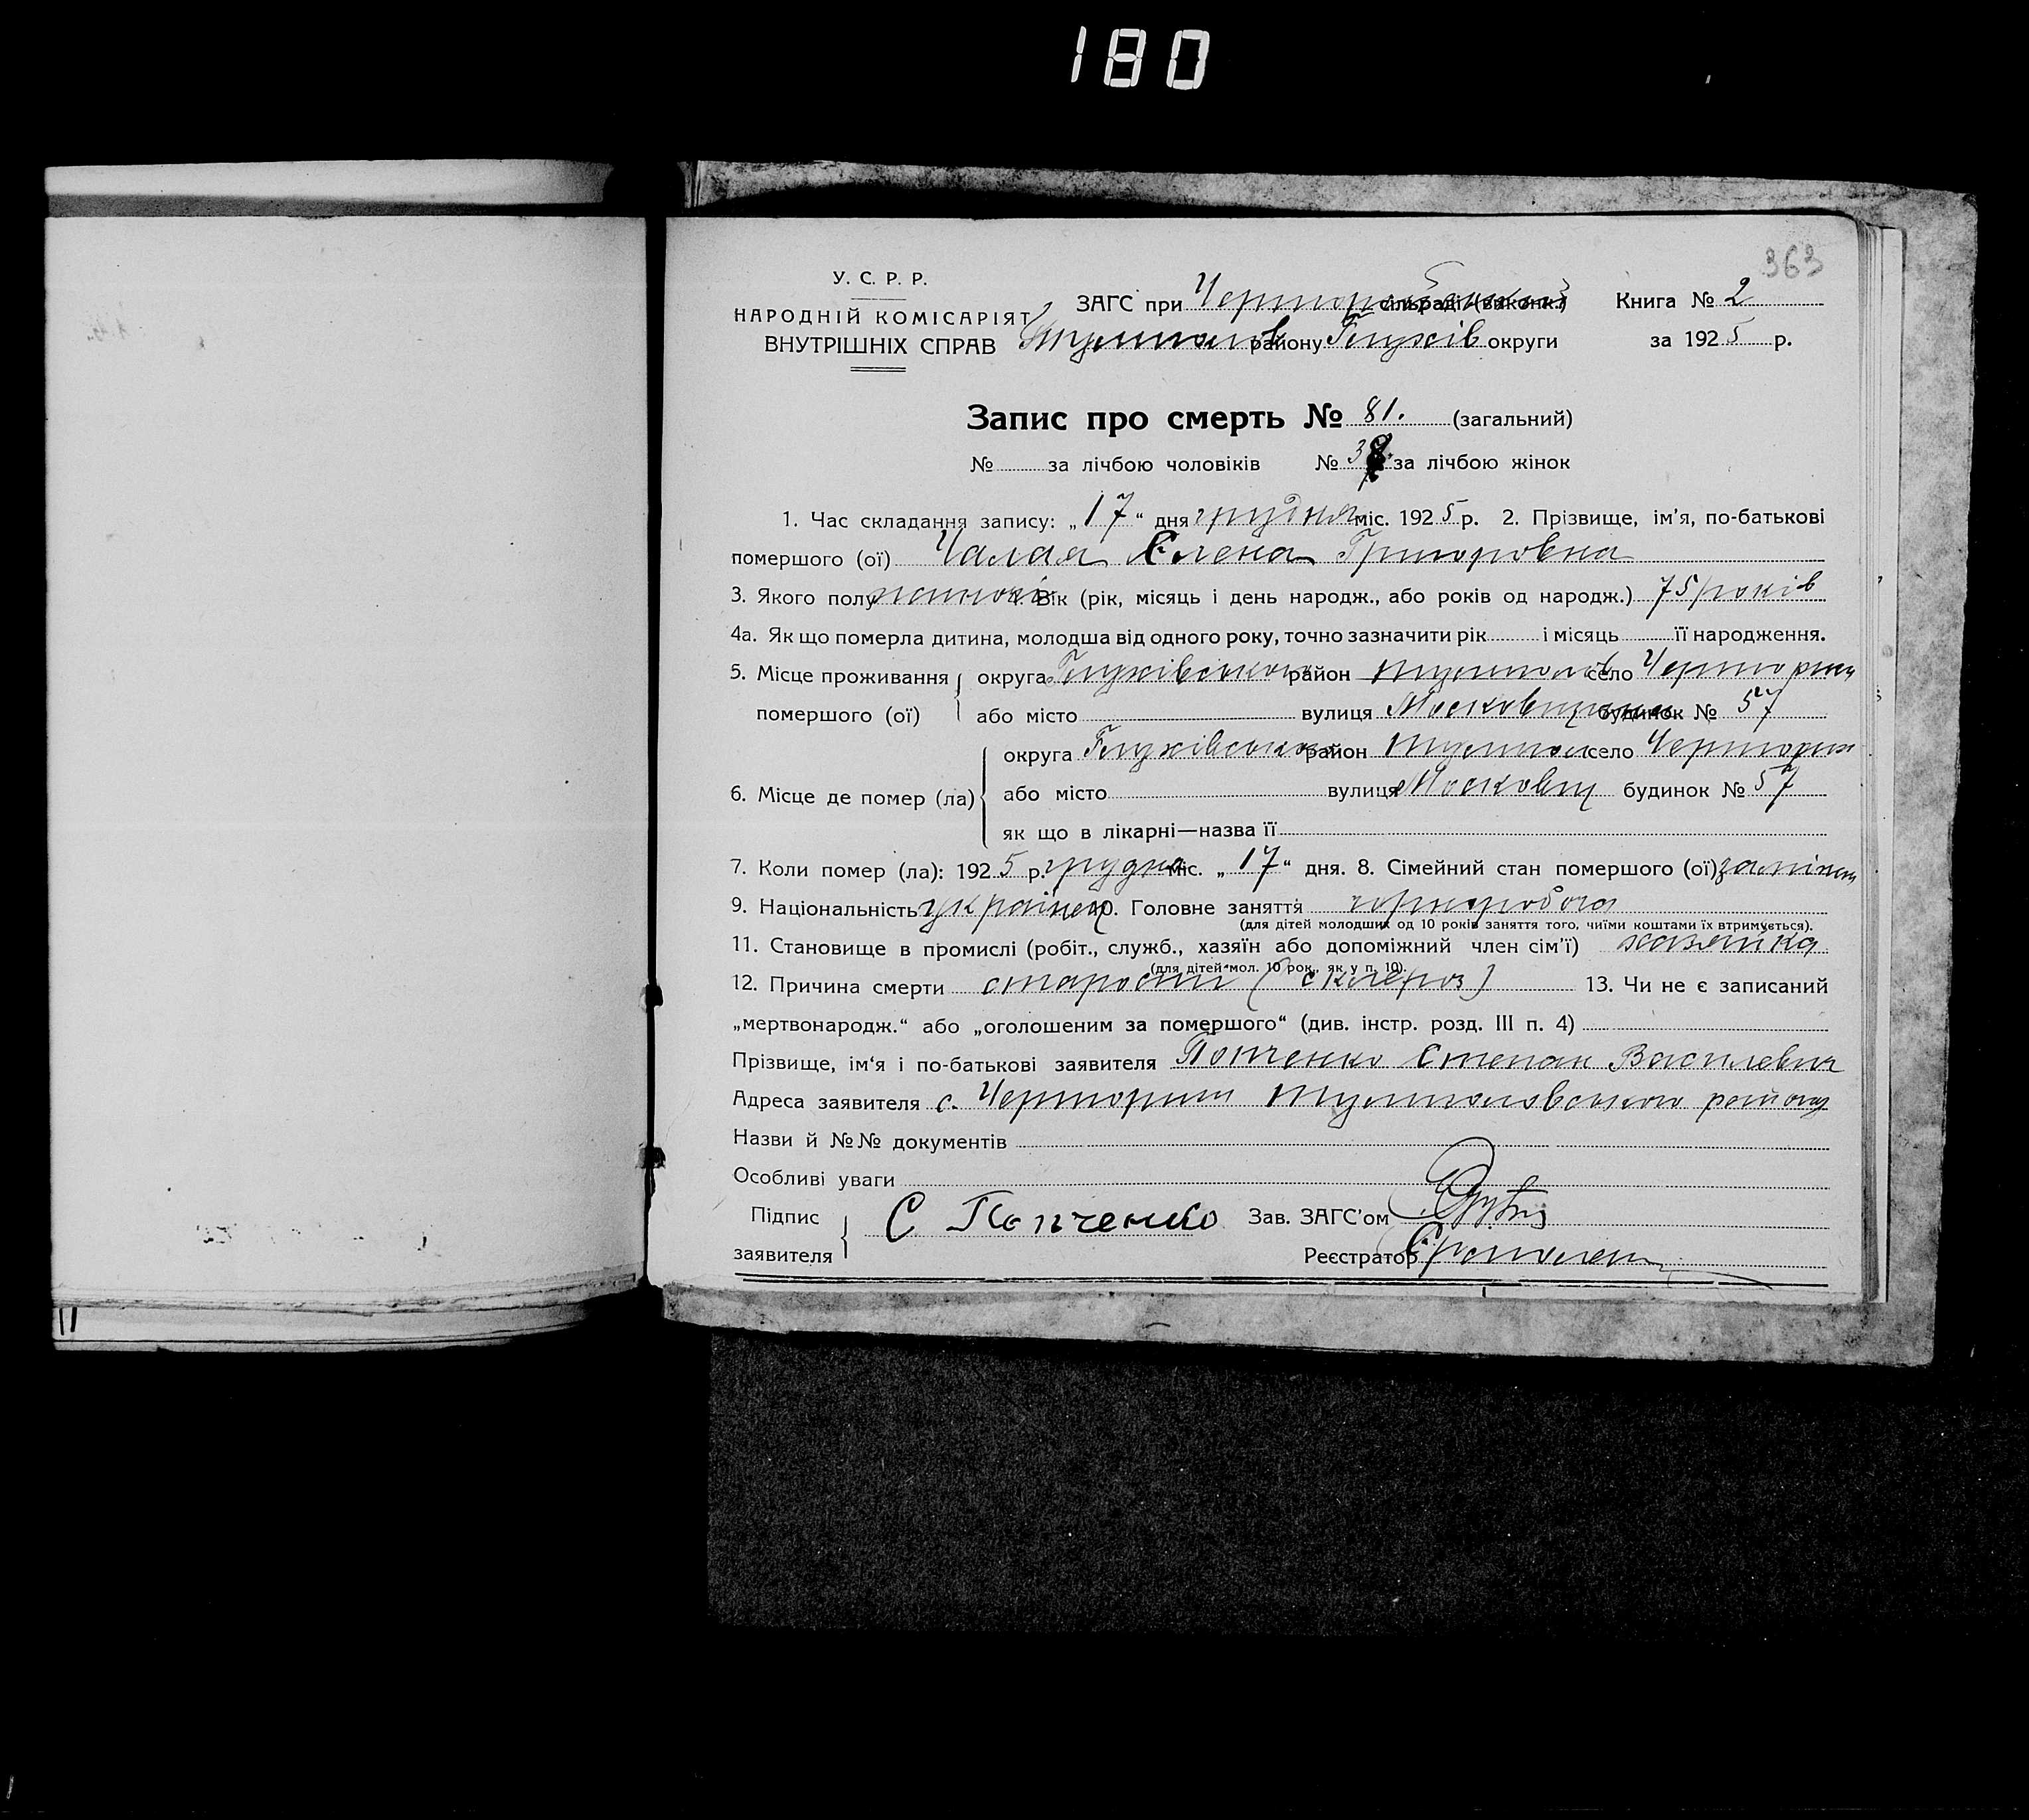 180
363
У. С. Р. Р.
НАРОДНІЙ КОМІСАРІЯТ
ВНУТРІШНІХ СПРАВ
ЗАГС при сільраді (виконк.) Книга № 2
району Глухів округи за 1925 р.
Запис про смерть № 81. (загальний)
№ за лічбою чоловіків № за лічбою жінок
1. Час складання запису: „17“ дня грудня міс. 1925 р. 2. Прізвище, ім’я, по-батькові
помершого (ої) Чалая Елена Григоровна
3. Якого полу жіночі 4. Вік (рік, місяць і день народж., або років од народж.) 75 років
4а. Як що померла дитина, молодша від одного року, точно зазначити рік і місяць її народження.
5. Місце проживання округа Глухівського район село
помершого (ої) або місто вулиця будинок № 57
округа район село
6. Місце де помер (ла) або місто вулиця Московщ будинок № 57
як що в лікарні—назва її
7. Коли помер (ла): 1925 р. грудня міс. „17“ дня. 8. Сімейний стан помершого (ої)
9. Національність україн 10. Головне заняття
(для дітей молодших од 10 років заняття того, чиїми коштами їх втримується).
11. Становище в промислі (робіт., служб., хазяїн або допоміжний член сім’ї) хазяйка
(для дітей мол. 10 рок., як у п. 10).
12. Причина смерти старость (склероз) 13. Чи не є записаний
„мертвонародж.“ або „оголошеним за помершого“ (див. інстр. розд. III п. 4)
Прізвище, ім‘я і по-батькові заявителя Степан Василевич
Адреса заявителя с. району
Назви й №№ документів
Особливі уваги
Підпис
заявителя
С
Зав. ЗАГС’ом
Реєстратор